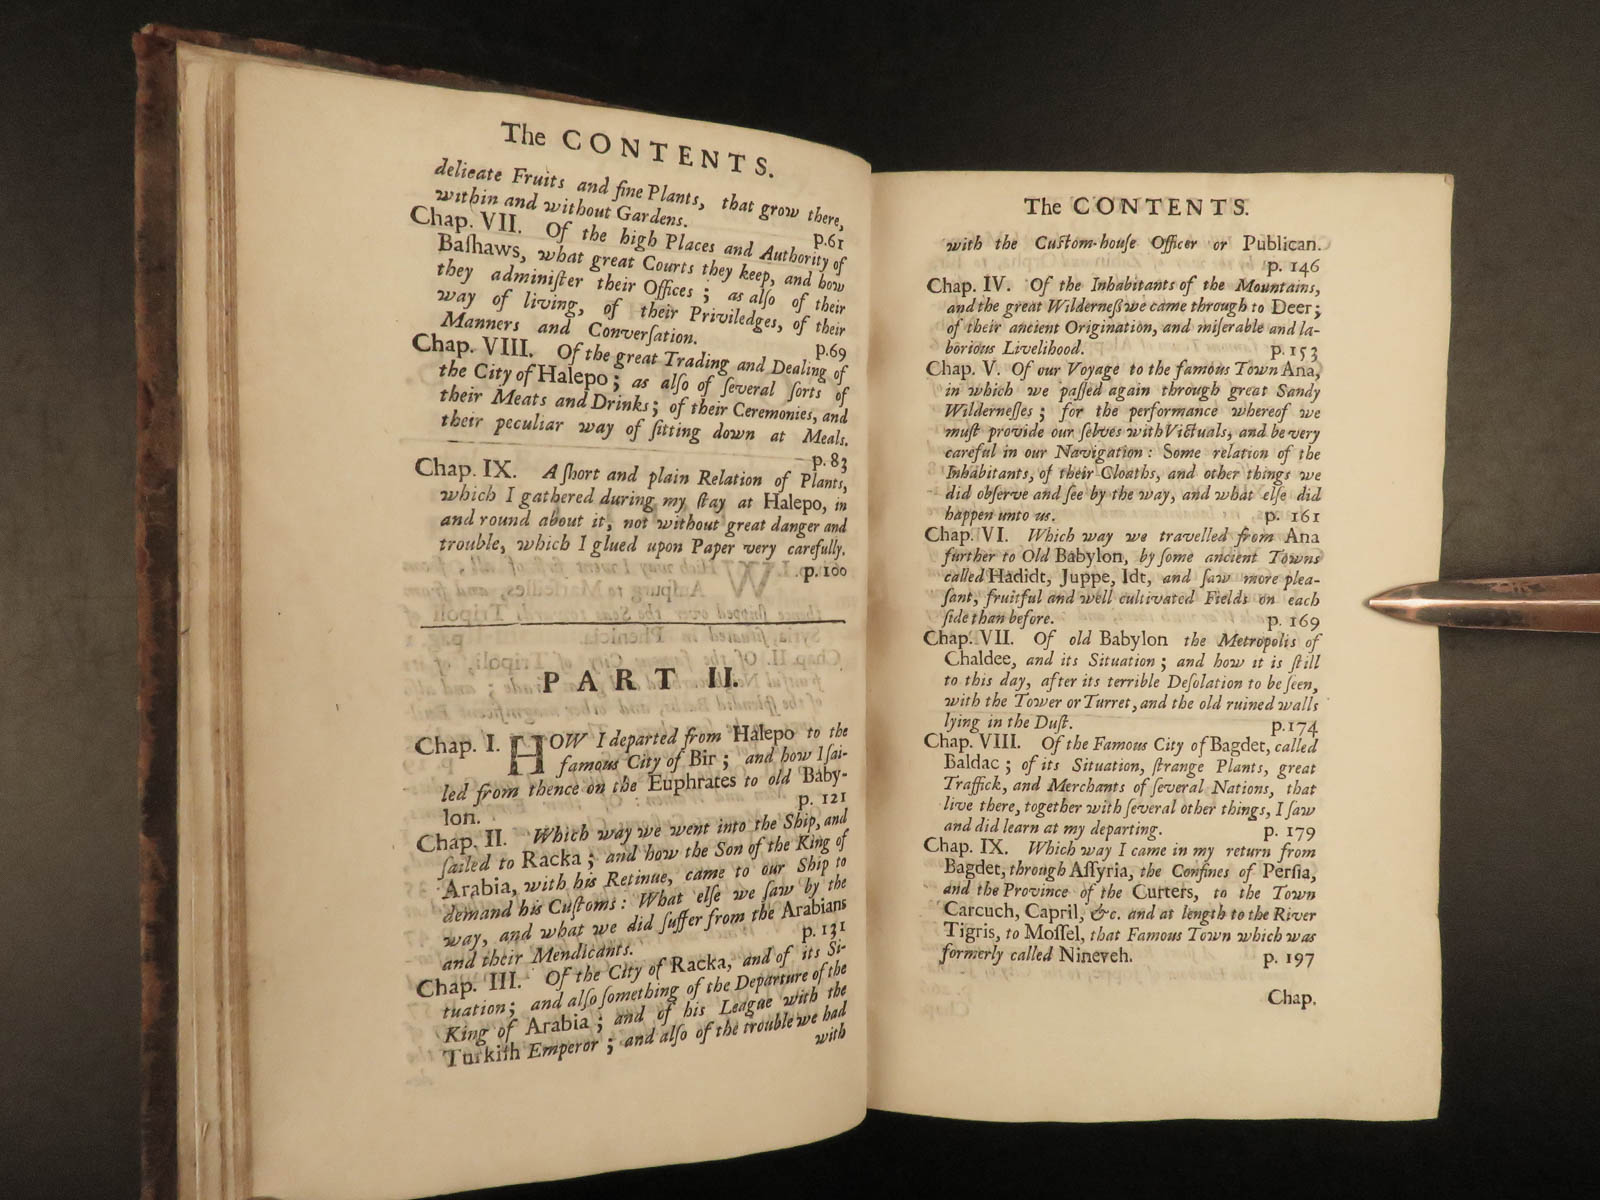 The CONTENTS.
delicate Fruits and fine Plants, that grow there,
within and without Gardens. p.61
Chap. VII. Of the high Places and Authority of
Baſhaws, what great Courts they keep, and how
they adminiſter their Offices; as alſo of their
way of living, of their Priviledges, of their
Manners and Converſation. p.69
Chap. VIII. Of the great Trading and Dealing of
the City of Halepo; as alſo of ſeveral ſorts of
their Meats and Drinks; of their Ceremonies, and
their peculiar way of ſitting down at Meals.
p. 83
Chap. IX. A ſhort and plain Relation of Plants,
which I gathered during my ſtay at Halepo, in
and round about it, not without great danger and
trouble, which I glued upon Paper very carefully.
p. 100
PART II.
Chap. I. HOW I departed from Halepo to the
famous City of Bir; and how I ſai-
led from thence on the Euphrates to old Baby-
lon. p. 121
Chap. II. Which way we went into the Ship, and
ſailed to Racka; and how the Son of the King of
Arabia, with his Retinue, came to our Ship to
demand his Cuſtoms: What elſe we ſaw by the
way, and what we did ſuffer from the Arabians
and their Mendicants. p. 131
Chap. III. Of the City of Racka, and of its Si-
tuation; and alſo ſomething of the Departure of the
King of Arabia; and of his League with the
Turkiſh Emperor; and alſo of the trouble we had
with
The CONTENTS.
with the Cuſtom-houſe Officer or Publican.
p. 146
Chap. IV. Of the Inhabitants of the Mountains,
and the great Wilderneß we came through to Deer;
of their ancient Origination, and miſerable and la-
borious Livelihood. p. 153
Chap. V. Of our Voyage to the famous Town Ana,
in which we paſſed again through great Sandy
Wilderneſſes; for the performance whereof we
muſt provide our ſelves with Victuals, and be very
careful in our Navigation: Some relation of the
Inhabitants, of their Cloaths, and other things we
did obſerve and ſee by the way, and what elſe did
happen unto us. p. 161
Chap. VI. Which way we travelled from Ana
further to Old Babylon, by ſome ancient Towns
called Hadidt, Juppe, Idt, and ſaw more plea-
ſant, fruitful and well cultivated Fields on each
ſide than before. p. 169
Chap. VII. Of old Babylon the Metropolis of
Chaldee, and its Situation; and how it is ſtill
to this day, after its terrible Deſolation to be ſeen,
with the Tower or Turret, and the old ruined walls
lying in the Duſt. p.174
Chap. VIII. Of the Famous City of Bagdet, called
Baldac; of its Situation, ſtrange Plants, great
Traffick, and Merchants of ſeveral Nations, that
live there, together with ſeveral other things, I ſaw
and did learn at my departing. p. 179
Chap. IX. Which way I came in my return from
Bagdet, through Aſſyria, the Confines of Perſia,
and the Province of the Curters, to the Town
Carcuch, Capril, &c. and at length to the River
Tigris, to Moſſel, that Famous Town which was
formerly called Nineveh. p. 197
Chap.